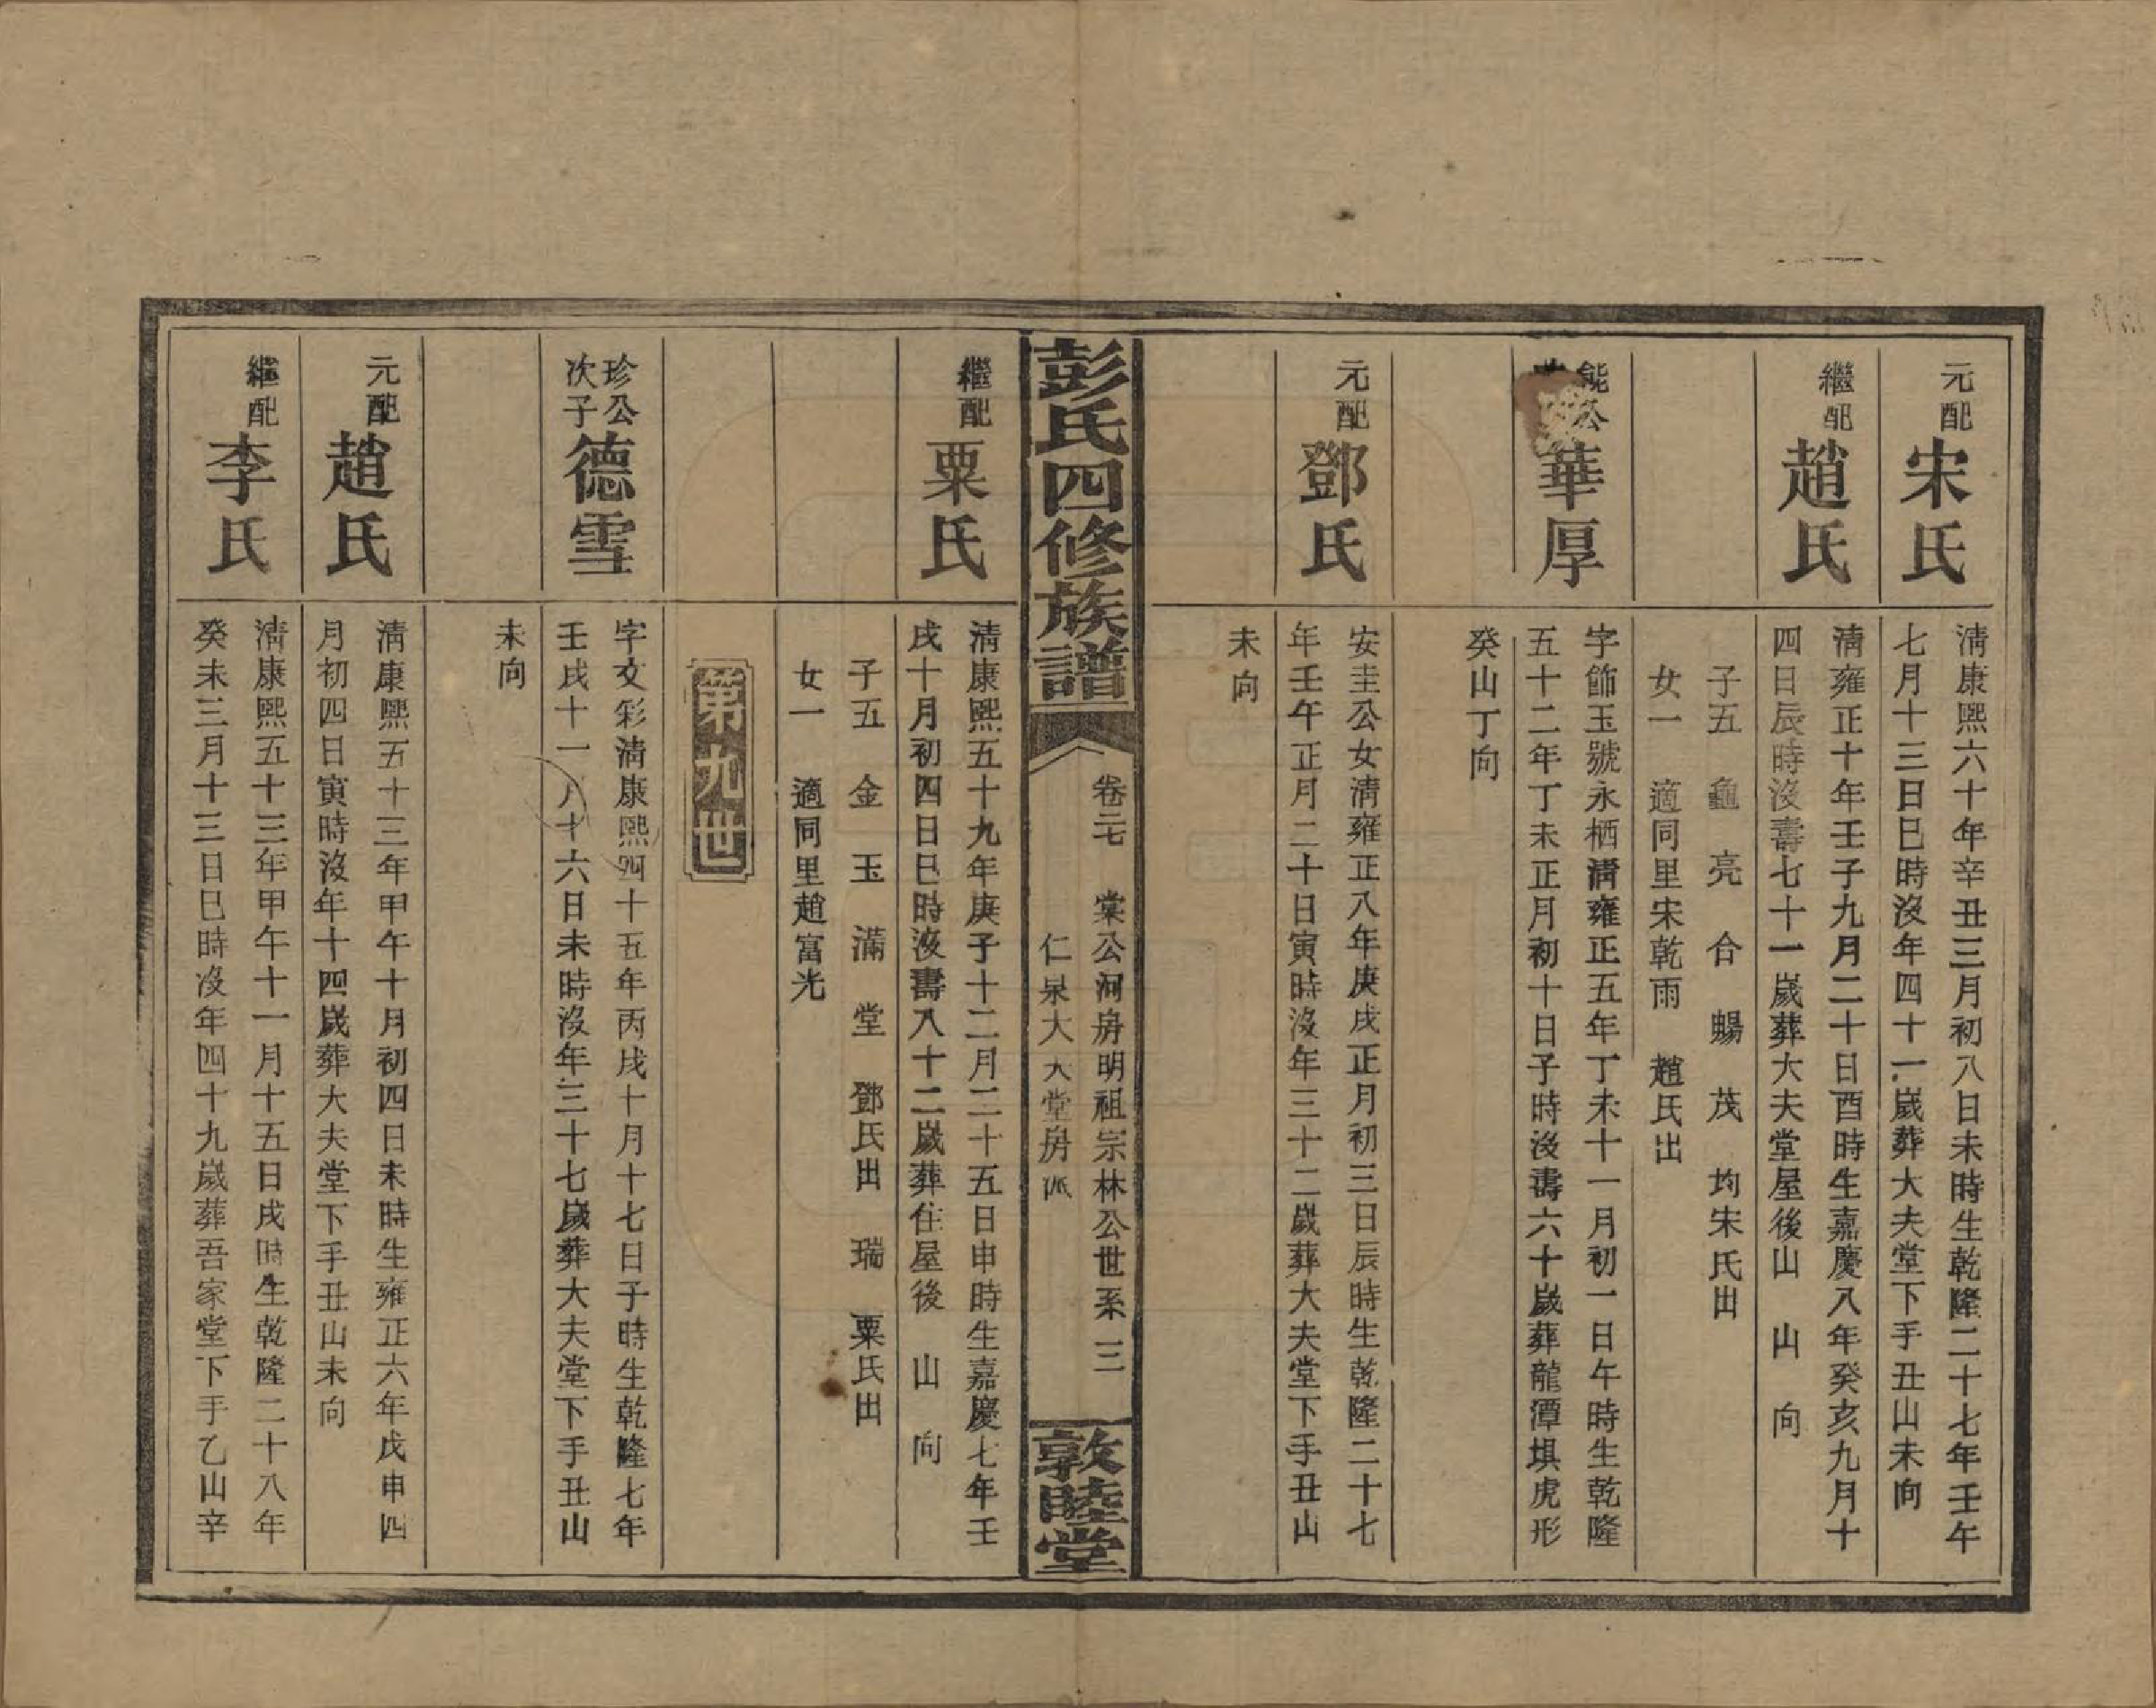 元配
宋氏
淸康熙六十年辛丑三月初八日未時生乾隆二十七年壬午
七月十三日巳時沒年四十一嵗葬大夫堂下手丑山未向
繼配
趙氏
淸雍正十年壬子九月二十日酉時生嘉慶八年癸亥九月十
四日辰時沒壽七十一嵗葬大夫堂屋後山 山 向
子五 龜 亮 合 暘 茂 均宋氏出
女一 適同里宋乾雨 趙氏出
能公
華厚
字飾玉號永栖淸雍正五年丁未十一月初一日午時生乾隆
五十二年丁未正月初十日子時沒壽六十嵗葬龍潭埧虎形
癸山丁向
元配
鄧氏
安圭公女淸雍正八年庚戌正月初三日辰時生乾隆二十七
年壬午正月二十日寅時沒年三十二嵗葬大夫堂下手丑山
未向
彭氏四修族譜
卷二七 棠公河房明祖宗林公世系 三
仁泉大夫堂房派
敦睦堂
繼配
粟氏
淸康熙五十九年庚子十二月二十五日申時生嘉慶七年壬
戌十月初四日巳時沒壽八十二嵗葬住屋後 山 向
子五 金 玉 滿 堂 鄧氏出 瑞 粟氏出
女一 適同里趙富光
第九世
珍公
次子
德雪
字文彩淸康熙四十五年丙戌十月十七日子時生乾隆七年
壬戌十一月十六日未時沒年三十七嵗葬大夫堂下手丑山
未向
元配
趙氏
淸康熙五十三年甲午十月初四日未時生雍正六年戊申四
月初四日寅時沒年十四嵗葬大夫堂下手丑山未向
繼配
李氏
淸康熙五十三年甲午十一月十五日戌時生乾隆二十八年
癸未三月十三日巳時沒年四十九嵗葬吾家堂下手乙山辛